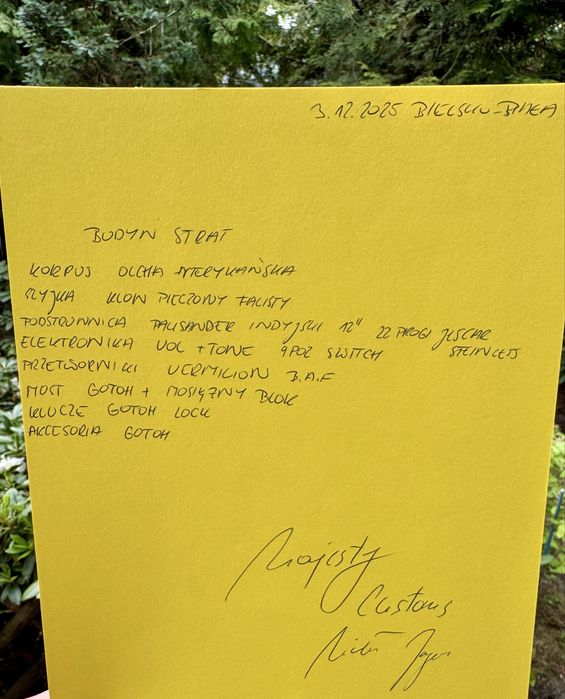 3.12.2025 BIELSKO-BIAŁA
BUDYŃ STRAT
KORPUS OLCHA AMERYKAŃSKA
SZYJKA KLON PIECZONY FALISTY
PODSTRUNNICA PALISANDER INDYJSKI 12" 22 PROGI JESCAR
STEINLESS
ELEKTRONIKA VOL + TONE 4POZ SWITCH
PRZETWORNIKI VERMILION B.A.F
MOST GOTOH + MOSIĘŻNY BLOK
KLUCZE GOTOH LOCK
AKCESORIA GOTOH
Majesty
Customs